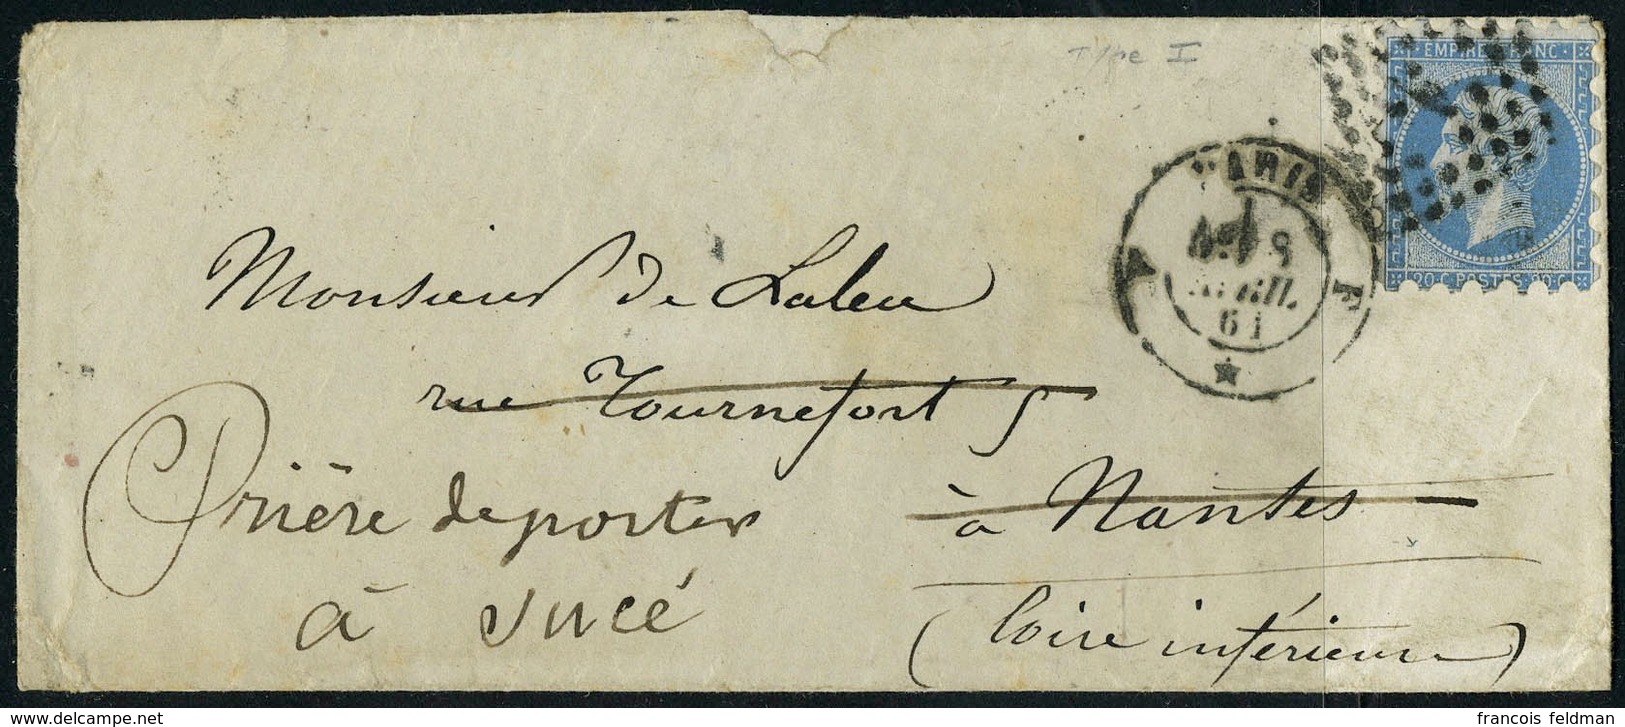 Type I
EMPIRE FRANC
20 C POSTES 20 C
PARIS
8
AVRIL
61
F
Monsieur de Laleu
rue Tournefort 5
à Nantes
(Loire inférieure)
Prière de porter
à Sucé
delcampe.net
francois feldman